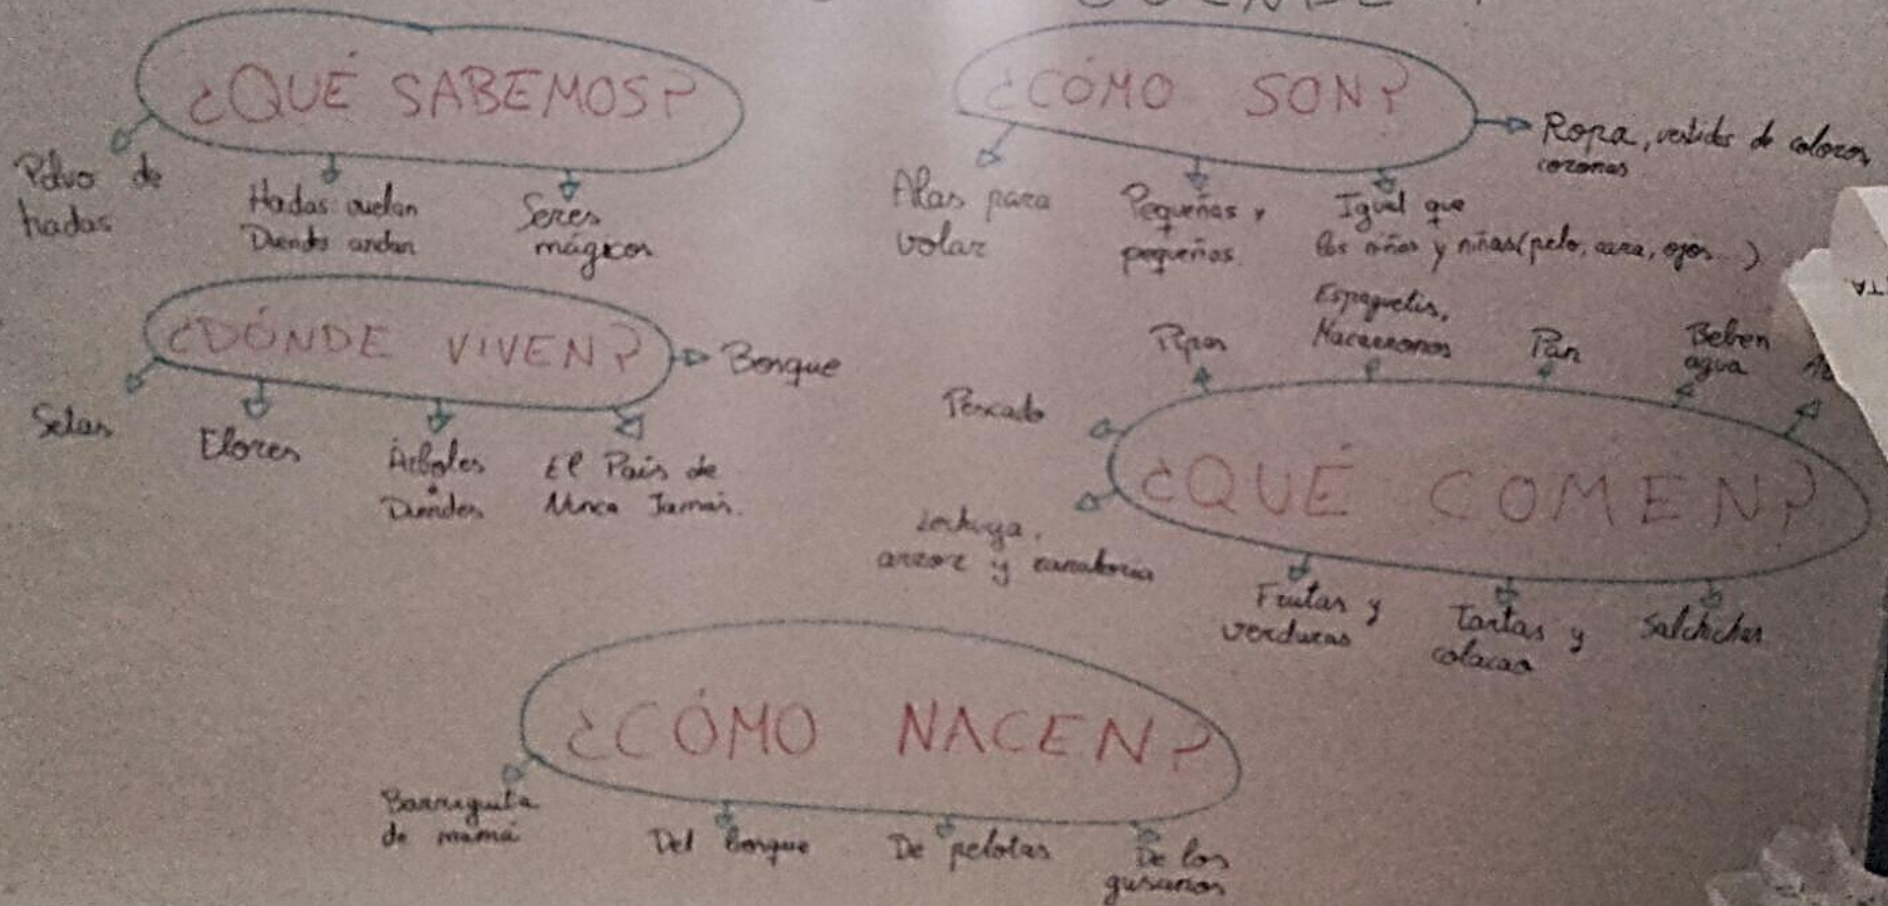 ¿QUÉ SABEMOS?
Polvo de
hadas
Hadas vuelan
Duendes andan
Seres
mágicos
¿CÓMO SON?
Alas para
volar
Pequeñas y
pequeños
Igual que
los niños y niñas (pelo, cara, ojos...)
Ropa, vestidos de colores,
coronas
¿DÓNDE VIVEN?
Setas
Flores
Árboles
Duendes
El País de
Nunca Jamás.
Bosque
¿QUÉ COMEN?
Pescado
Pipas
Espaguetis,
Macarrones
Pan
Beben
agua
Lechuga,
arroz y zanahoria
Frutas y
verduras
Tartas y
colacao
Salchichas
¿CÓMO NACEN?
Barriguita
de mamá
Del bosque
De pelotas
De los
gusanos